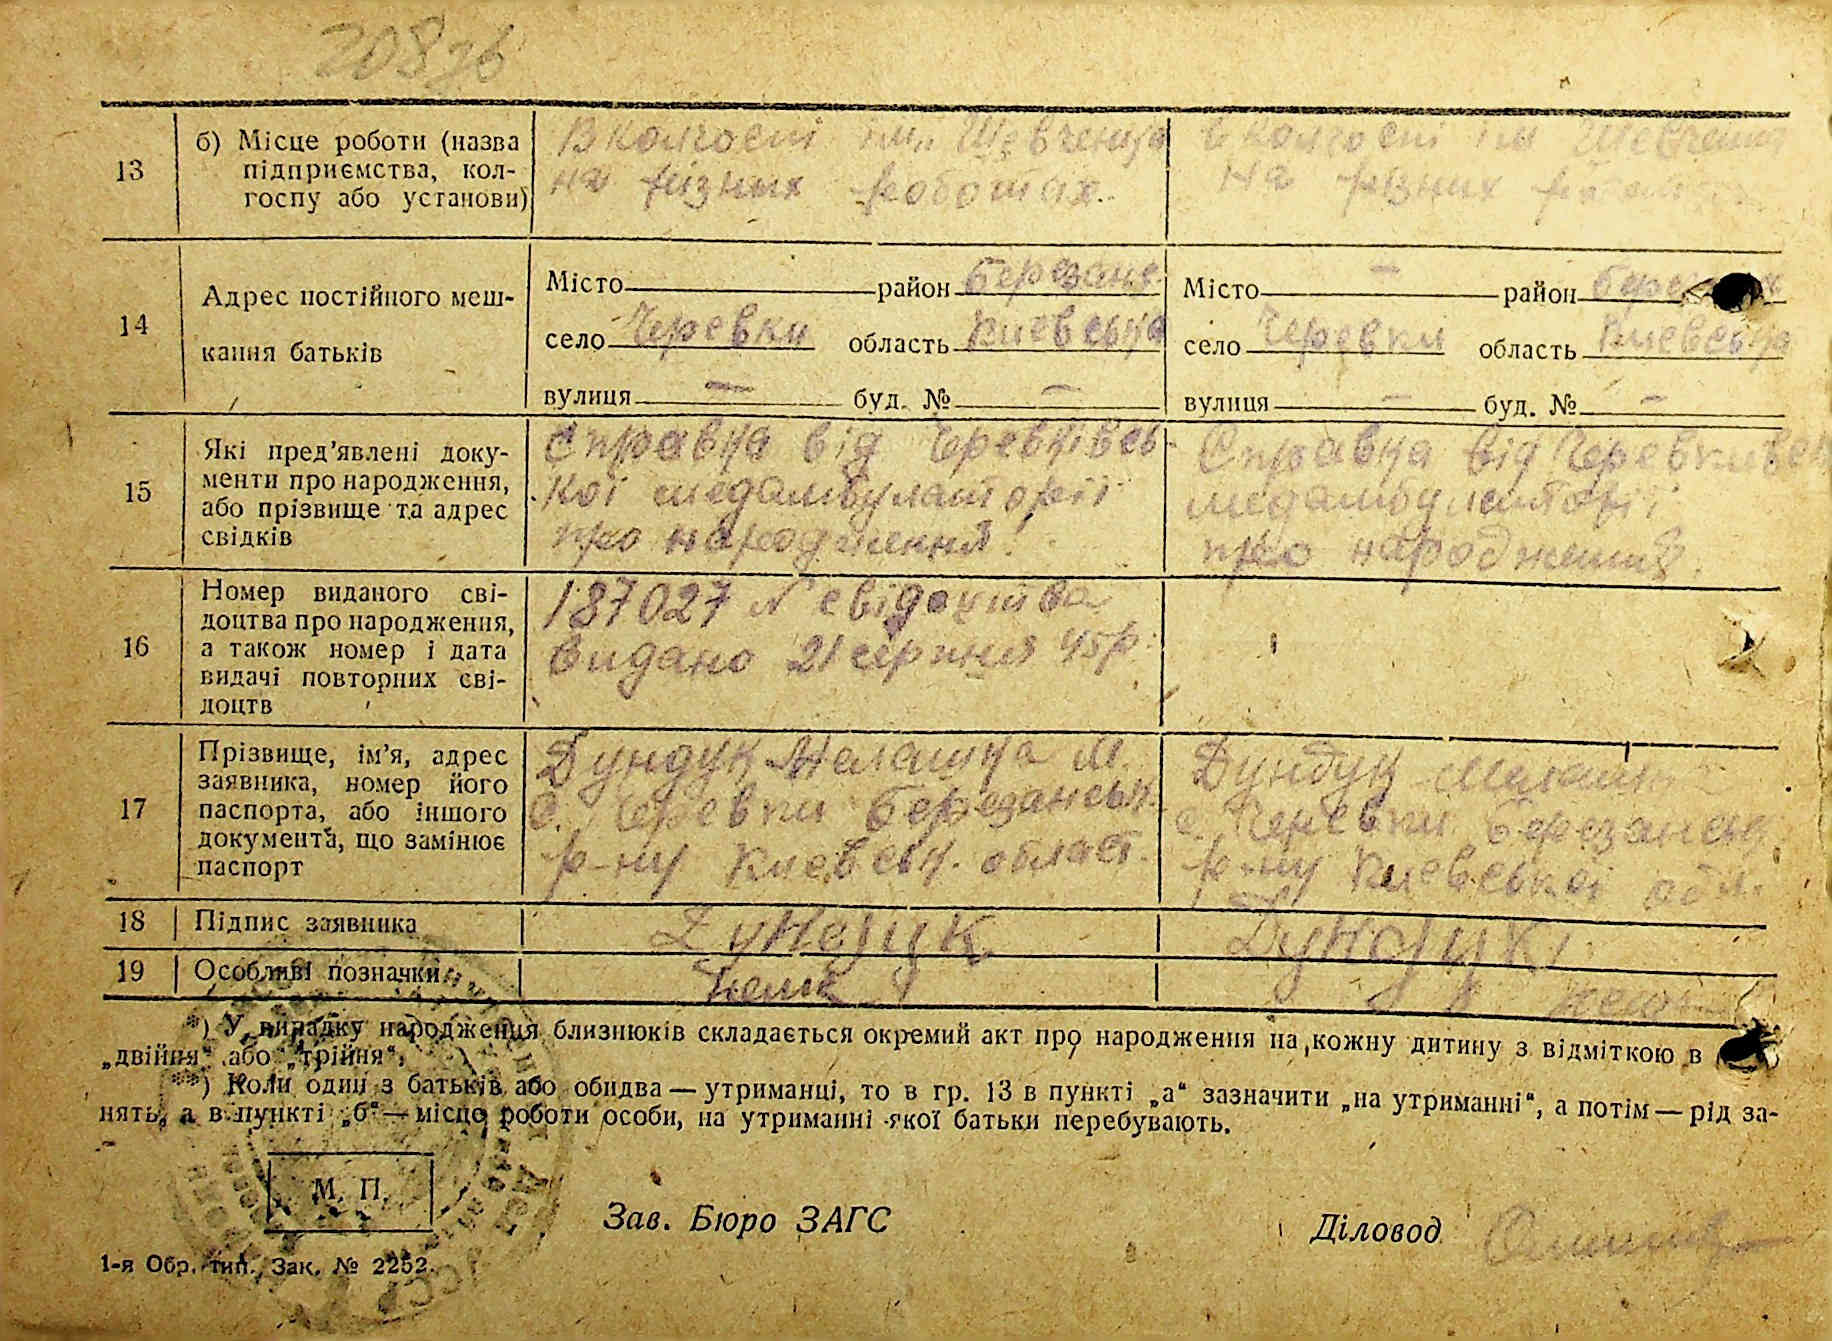 20876
13
б) Місце роботи (назва
підприємства, кол-
госпу або установи)
В колгоспі ім. Шевченка
на різних роботах.
в колгоспі ім Шевченка
на різних роботах
14
Адрес постійного меш-
кання батьків
Місто — район Березанс.
село Черевки область Киевська
вулиця — буд. № —
Місто — район
село Черевки область Киевська
вулиця — буд. № —
15
Які пред’явлені доку-
менти про народження,
або прізвище та адрес
свідків
Справка від Черевківсь-
кої медамбулаторії
про народження.
Справка від
медамбулаторії
про народження.
16
Номер виданого сві-
доцтва про народження,
а також номер і дата
видачі повторних сві-
доцтв
187027 № свідоцтва
видано 21 серпня 45 р.
17
Прізвище, ім’я, адрес
заявника, номер його
паспорта, або іншого
документа, що замінює
паспорт
Дундук Мелашка М.
с. Черевки Березанськ.
р-ну Киевськ. област.
Дундук
с. Черевки Березанськ.
р-ну Киевської обл.
18
Підпис заявника
Дундук
Дундук
19
Особливі позначки
*) У випадку народження близнюків складається окремий акт про народження на кожну дитину з відміткою в
„двійня“ або „трійня“,
**) Коли один з батьків або обидва — утриманці, то в гр. 13 в пункті „а“ зазначити „на утриманні“, а потім — рід за-
нять, а в пункті „б“ — місце роботи особи, на утриманні якої батьки перебувають.
М. П.
Зав. Бюро ЗАГС
Діловод
1-я Обр. тип. Зак. № 2252.